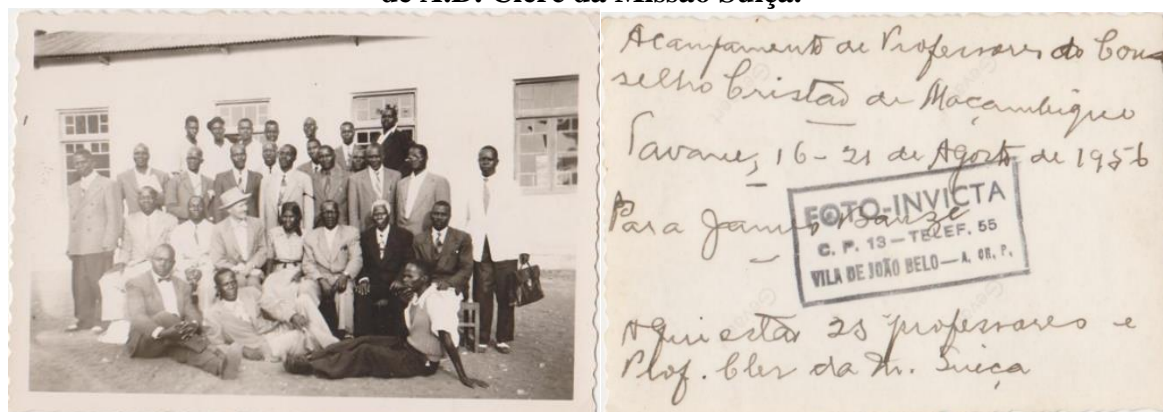 de A.D. Clerc da Missão Suíça.
Acampamento de Professores do Con
selho Cristão de Moçambique
Tavane, 16-21 de Agosto de 1956
Para James
FOTO-INVICTA
C. P. 13 — TELEF. 55
VILA DE JOÃO BELO — A. OR. P.
Aqui estão 25 professores e
Prof. Cler da M. Suiça